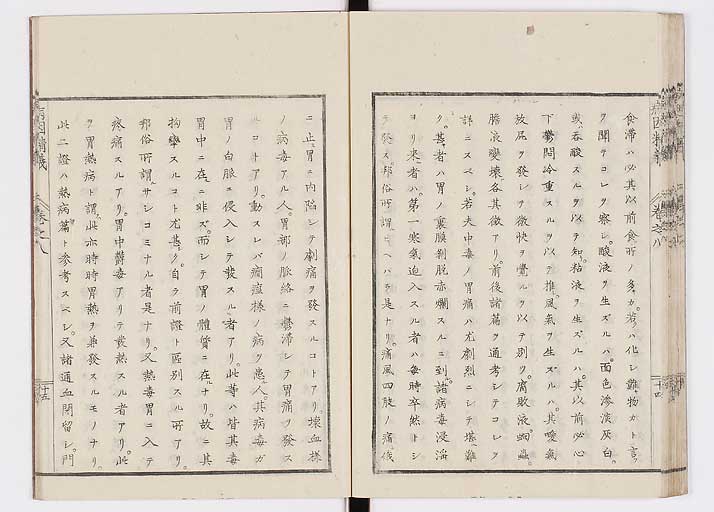 食滞ハ必其以前食所ノ多カ若ハ化シ難物カト言
ヲ聞テコレヲ察シ酸液ヲ生ズルハ面色滲淡灰白
或呑酸スルヲ以テ知粘液ヲ生ズルハ其以前必心
下鬱悶冷重スルヲ以テ推風氣ヲ生ズルハ其噯氣
放屁ヲ發シテ微快ヲ覺ルヲ以テ別ク腐敗液蛔蟲
膽液變壊各其徴アリ前後諸篇ヲ通考シテコレヲ
詳ニスベシ若夫中毒ノ胃痛ハ尤劇烈ニシテ堪難
ク甚者ハ胃ノ裏膜剝脱赤爛スルニ到諸病毒浸淫
ヨリ来者ハ第一寒氣迫入スル者ハ毎時卒然トシ
テ發ス邦俗所謂ヘハラ是ナリ痛風四肢ノ痛俄
十四
病因精義
巻之八
ニ止胃ニ内陥シテ劇痛ヲ發スルコトアリ壊血様
ノ病毒アル人胃部ノ脈絡ニ鬱滞シテ胃痛ヲ發ス
ルコトアリ動スレバ癇症様ノ病ヲ患人其病毒ガ
胃ノ白脈ニ侵入シテ發スル者アリ此等ハ皆其毒
胃中ニ在ニ非ズ而シテ胃ノ體質ニ在ナリ故ニ其
拘攣スルコト尤甚ク自ラ前證ト區別スル所アリ
邦俗所謂サシコミナル者是ナリ又熱毒胃ニ入テ
疼痛スルアリ胃中鬱毒アリテ發熱スル者アリ此
ヲ胃熱病ト謂此亦時時胃熱ヲ兼發スルモノナリ
此二證ハ熱病篇ト参考スベシ又諸通血閉留シ門
十五